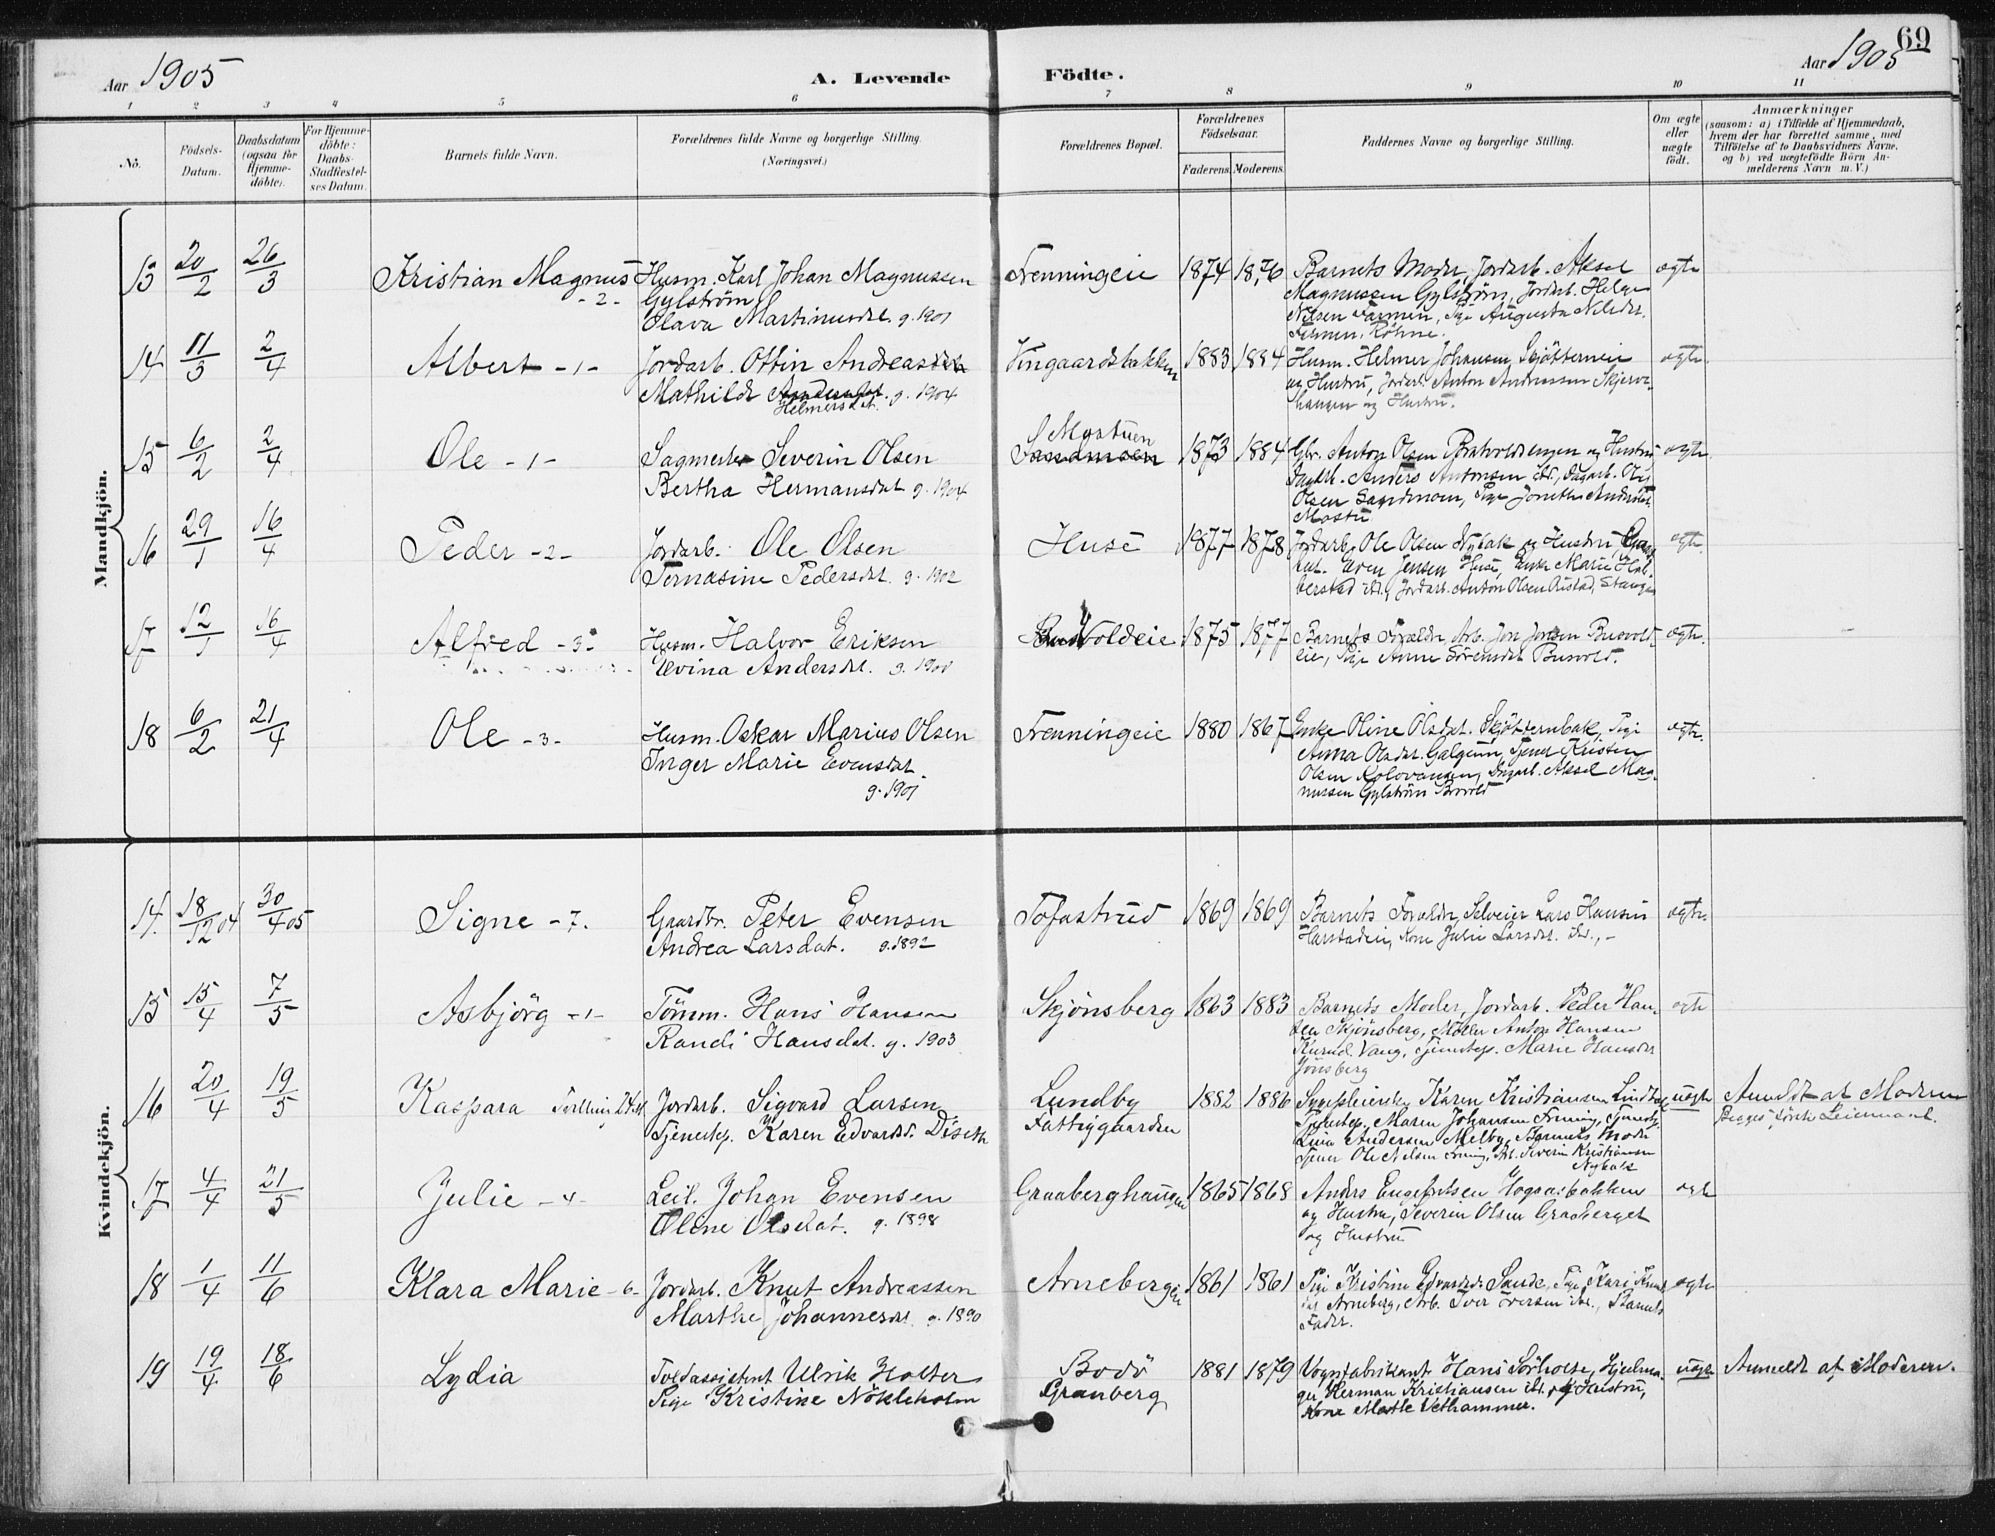 69
Aar 1905
A. Levende Födte.
Aar 1905
1 2 3 4 5 6 7 8 9 10 11
No.
Födsels-Datum.
Daabsdatum (ogsaa for Hjemme-döbte).
For Hjemme-döbte: Daabs-Stadfæstel-ses Datum.
Barnets fulde Navn.
Forældrenes fulde Navne og borgerlige Stilling.
(Næringsvei.)
Forældrenes Bopæl.
Forældrenes Födselsaar.
Faderens. Moderens.
Faddernes Navne og borgerlige Stilling.
Om ægte eller uægte födt.
Anmærkninger
(saasom: a) i Tilfælde af Hjemmedaab,
hvem der har forrettet samme, med
Tilföielse af to Daabsvidners Navne,
og b) ved uægtefödte Börn An-
melderens Navn m. V.)
Mandkjön.
13 20/2 26/3 Kristian Magnus -2- Husm. Karl Johan Magnussen Frenningeie 1874 1876 Barnets Moder, Jordarb. Aksel ægte
Gylström Magnussen Gylström, Jordarb. Helge
Olava Martinusdt. g. 1901 Nilsen Farmen, Pige Augusta Nilsdt.
Farmen, Röhne.
14 11/3 2/4 Albert -1- Jordarb. Ottin Andreassen Vingaardsbakken 1883 1884 Husm. Helmer Johansen Skjötterneie ægte.
Mathilde Helmersdt. g. 1904 og Hustru, Jordarb. Anton Andreassen Skjerve-
haugen og Hustru.
15 6/2 2/4 Ole -1- Sagmester Severin Olsen Mostuen 1873 1884 Gbr. Anton Olsen og Hustru ægte
Bertha Hermansdat g. 1904 Dagarb. Anders Antonsen ibd., Dagarb.
Olsen Sandmoen, Pige
Mostu
16 29/1 16/4 Peder -2- Jordarb. Ole Olsen Huse 1877 1878 Jordarb. Ole Olsen Nybak og Hustru, ægte.
Tomasine Pedersdt. g. 1902 Even Jensen Huse, Enke Marie Hal-
berstad ibd., Jordarb. Anton Olsen Ristad, Stange
17 12/1 16/4 Alfred -3- Husm. Halvor Eriksen Voldeie 1875 1877 Barnets Forældre, Arb. Jon Jonsen Busvold- ægte.
Evina Andersdt. g. 1900 eie, Pige Anne Sörensdt Busvold.
18 6/2 21/4 Ole -3- Husm. Oskar Marius Olsen Frenningeie 1880 1867 Enke Oline Olsdt. Skjötternbak, Pige ægte.
Inger Marie Evensdt. Anna Olsdt. Galgum, Tjener Kristen
g. 1901 Olsen Kolovangen, Dagarb. Aksel Mag-
nussen Gylström
Kvindekjön.
14. 18/12 04 30/4 05 Signe -7. Gaardbr. Peter Evensen Tofastrud 1869 1869 Barnets Forældre, Selveier Lars Hansen ægte
Andrea Larsdat. g. 1892 Harstadeie, Kone Julie Larsdt. ibd.,-
15 15/4 7/5 Asbjörg -1- Tömm. Hans Hansen Skjönsberg 1863 1883 Barnets Moder, Jordarb. Peder Han- ægte
Randi Hansdat. g. 1903 sen Skjönsberg, Möller Anton Hansen
Kurud Vang, Tjenestep. Marie Hansdt
Jönsberg
16 20/4 19/5 Kaspara Jordarb. Sigvard Larsen Lundby 1882 1886 Karen Kristiansen uægte Anmeldt af Moderen
Tjenestep. Karen Edvardsd. Diseth Fattiggaarden Tjenestep. Maren Johansen Frening, Begges förste Leiermaal.
Lina Andersen Melby, Barnets Moder
Tjener Ole Nilsen Frening, Arb. Severin Kristiansen
Nybak
17 4/4 21/5 Julie -4- Leil. Johan Evensen Graaberghaugen 1865 1868 Anders Engebretsen ægte
Oline Olsdat. g. 1898 og Hustru, Severin Olsen Graaberget
og Hustru
18 1/4 11/6 Klara Marie -6- Jordarb. Knut Andreassen Arnebergeie 1861 1861 Pige Kristine Edvardsdt. Sande, Pige Kari Knuts- ægte
Marthe Johannesdt g. 1890 dt Arneberg, Arb. Iver Iversen ibd., Barnets
Fader.
19 19/4 18/6 Lydia Toldassistent Ulrik Holter Bodö 1881 1879 Vognfabrikant Hans Sörholte, Hjulma- uægte Anmeldt af Moderen.
Pige Kristine Nökleholm Graaberg ger Herman Kristiansen ibd. og Hustru,
Kone Marthe Vethammer.